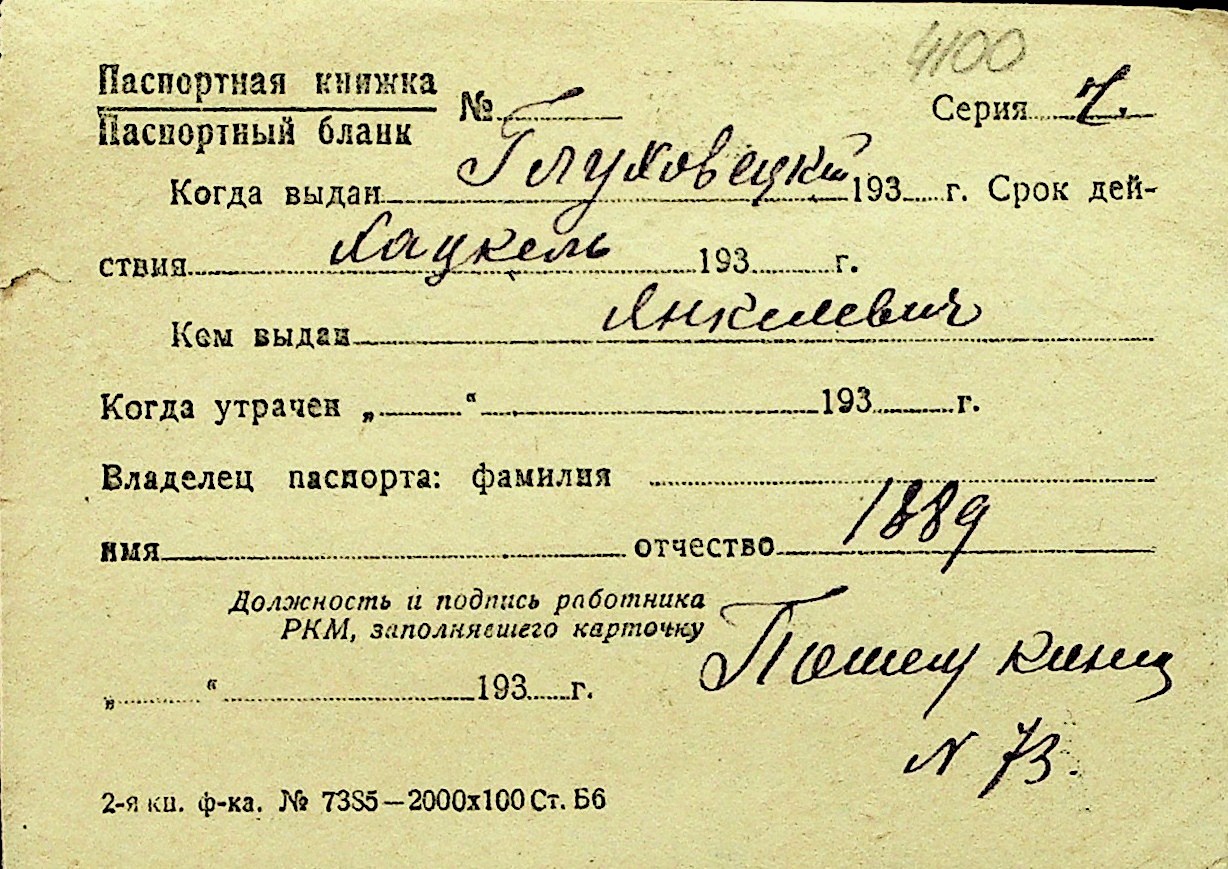 4100
Паспортная книжка
Паспортный бланк
№ Серия 7.
Когда выдан Глуховецкий 193 г. Срок дей-
ствия Хацкель 193 г.
Кем выдан Янкилевич
Когда утрачен „ “ 193 г.
Владелец паспорта: фамилия
имя отчество 1889
Должность и подпись работника
РКМ, заполнявшего карточку
„ “ 193 г.
N 73.
2-я кн. ф-ка. № 7385—2000х100 Ст. Б6